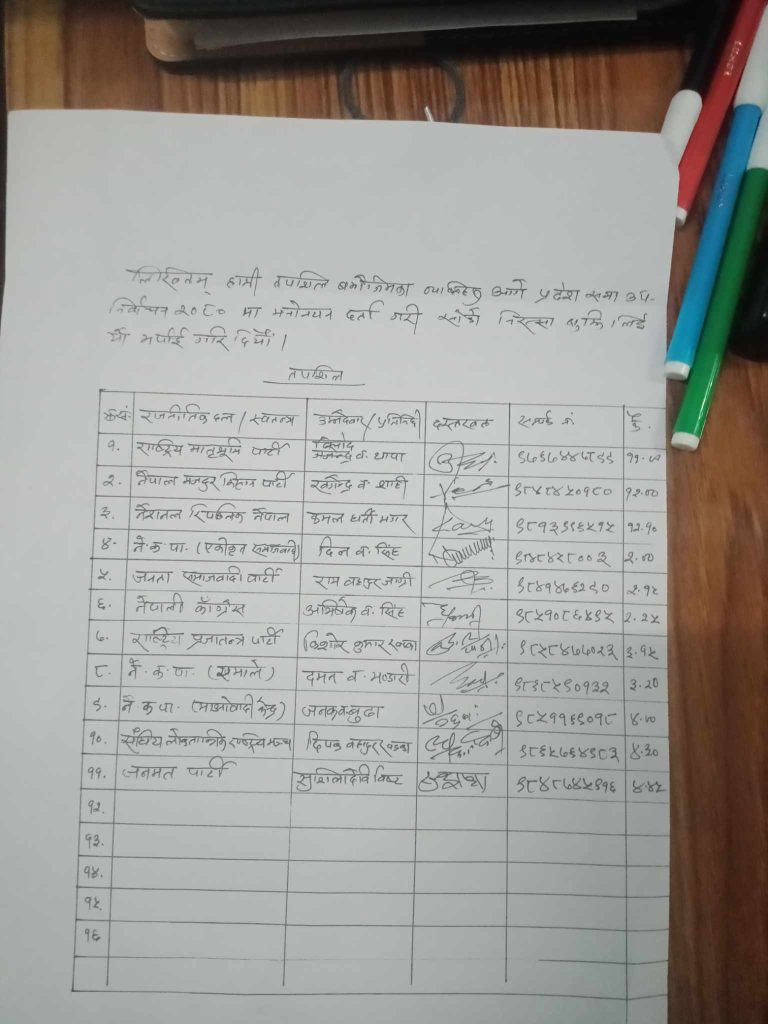 लिखितम् हामी तपशिल बमोजिमका व्यक्तिहरु आगे प्रदेश सभा उप-
निर्वाचन २०८० मा मनोनयन दर्ता गरी सोको निस्सा बुझि लिई
यो भर्पाई गरि दियौं।
तपशिल
क्र.सं. राजनीतिक दल / स्वतन्त्र उम्मेदवार / प्रतिनिधी दस्तखत सम्पर्क नं.
१. राष्ट्रिय मातृभूमि पार्टी गजेन्द्र व. थापा
२. नेपाल मजदुर किसान पार्टी रविन्द्र व. शाही ९८४८४५०१८० १२.००
३. नेशनल रिपब्लिक नेपाल कमल घर्ती मगर ९८१३९९६५१५ १२.१०
४. ने.क.पा. (एकीकृत समाजवादी) दिन व. सिंह ९८४८४२८००३ २.००
५. जनता समाजवादी पार्टी राम बहादुर ९८४१४७६२९० २.१५
६. नेपाली काँग्रेस अभिषेक व. सिंह ९८५१०८६४९५ २.२५
७. राष्ट्रिय प्रजातन्त्र पार्टी किशोर कुमार खड्का ९८५८४७७०२३ ३.१५
८. ने.क.पा. (एमाले) दमन व. भण्डारी ९८६८५९०१३२ ३.२०
९. ने.क.पा. (माओवादी केन्द्र) जनक व. बुढा ९८५११६९०१८ ४.००
१०. संघीय लोकतान्त्रिक राष्ट्रिय मञ्च दिपक बहादुर खड्का ९८६५७६४९८३ ४.३०
११. जनमत पार्टी सुशिलादेवि विष्ट ९८४८७४५९१६ ४.४५
१२.
१३.
१४.
१५.
१६